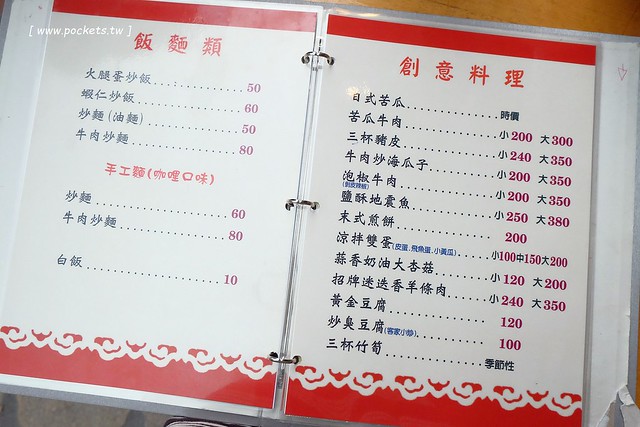 [ www.pockets.tw ]
飯麵類
火腿蛋炒飯..............50
蝦仁炒飯................60
炒麵(油麵)..............50
牛肉炒麵................80
手工麵(咖哩口味)
炒麵....................60
牛肉炒麵................80
白飯....................10
創意料理
日式苦瓜................時價
苦瓜牛肉................小200 大300
三杯豬皮................小240 大350
牛肉炒海瓜子............小200 大350
泡椒牛肉................小200 大350
(剝皮辣椒)
鹽酥地震魚..............小250 大380
末式煎餅................200
涼拌雙蛋(皮蛋.飛魚蛋.小黃瓜).....小100中150大200
蒜香奶油大杏菇..........小120 大200
招牌迷迭香羊條肉........小240 大350
黃金豆腐................120
炒臭豆腐(客家小炒)......100
三杯竹筍................季節性